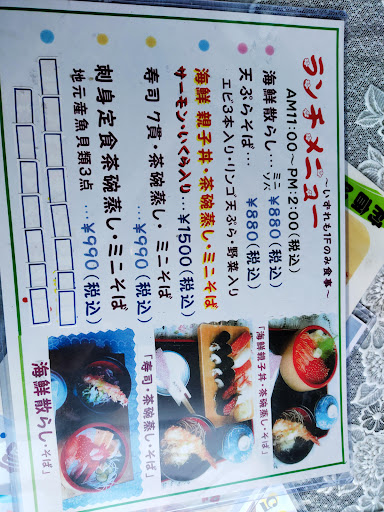 ランチメニュー
～いずれも1Fのみ食事～
AM11:00～PM2:00(税込)
海鮮散らし…ミニソバ ¥880(税込)
天ぷらそば… ¥880(税込)
エビ3本入り・リンゴ天ぷら・野菜入り
海鮮 親子丼・茶碗蒸し・ミニそば
サーモン・いくら入り… ¥1500(税込)
寿司 7貫・茶碗蒸し・ミニそば
…¥990(税込)
刺身定食茶碗蒸し・ミニそば
地元産魚貝類3点 …¥990(税込)
「海鮮親子丼・茶碗蒸し・そば」
「寿司・茶碗蒸し・そば」
海鮮散らし・そば」